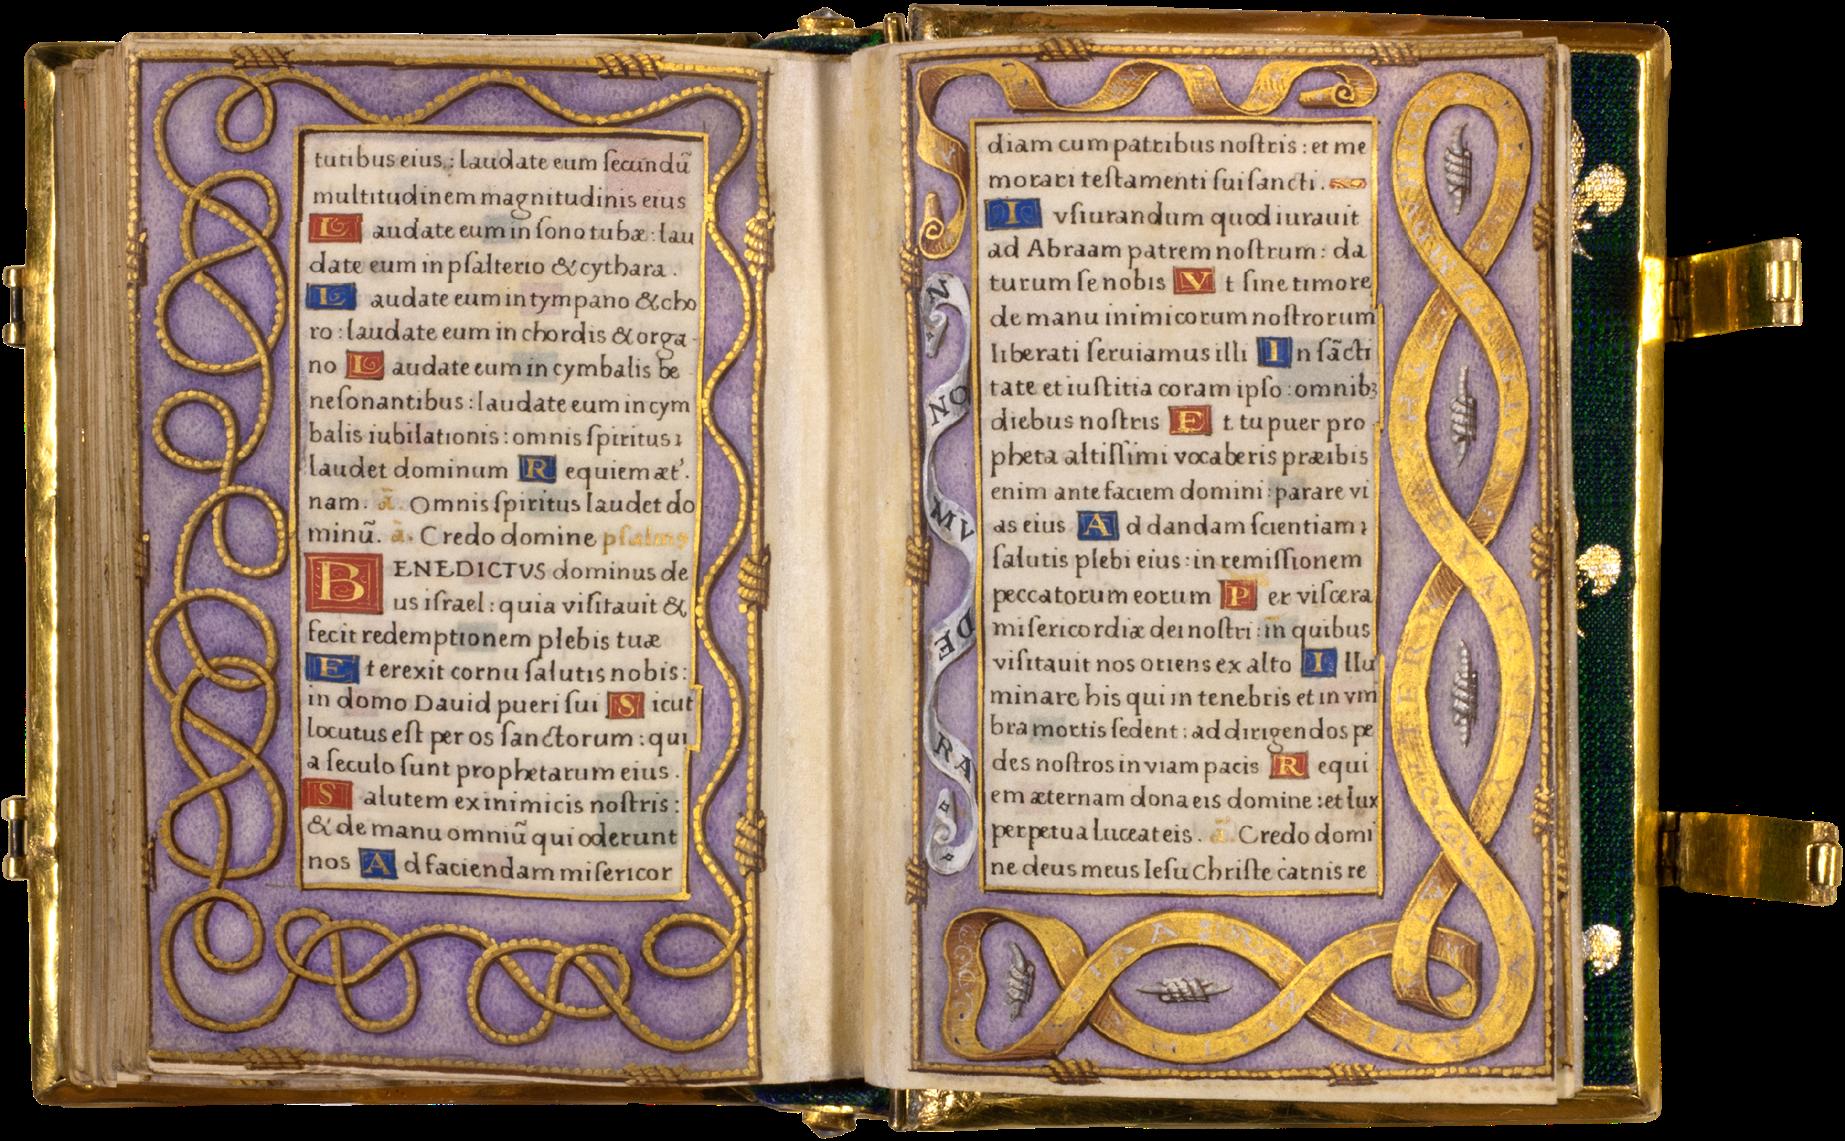 tutibus eius : laudate eum ſecundū
multitudinem magnitudinis eius
Laudate eum in ſono tubæ : lau
date eum in pſalterio & cythara .
Laudate eum in tympano & cho
ro : laudate eum in chordis & orga
no Laudate eum in cymbalis be
neſonantibus : laudate eum in cym
balis iubilationis : omnis ſpiritus
laudet dominum Requiem æt'.
nam . ā. Omnis ſpiritus laudet do
minū. ā. Credo domine pſalmus
BENEDICTVS dominus de
us iſrael : quia viſitauit &
fecit redemptionem plebis tuæ
Et erexit cornu ſalutis nobis :
in domo Dauid pueri ſui Sicut
locutus eſt per os ſanctorum : qui
a ſeculo ſunt prophetarum eius .
Salutem ex inimicis noſtris :
& de manu omniū qui oderunt
nos Ad faciendam miſericor
diam cum patribus noſtris : et me
morari teſtamenti ſui ſancti .
Iuſiurandum quod iurauit
ad Abraam patrem noſtrum : da
turum ſe nobis Vt ſine timore
de manu inimicorum noſtrorum
liberati ſeruiamus illi In ſācti
tate et iuſtitia coram ipſo : omnibꝫ
diebus noſtris Et tu puer pro
pheta altiſſimi vocaberis præibis
enim ante faciem domini : parare vi
as eius Ad dandam ſcientiam
ſalutis plebi eius : in remiſſionem
peccatorum eorum Per viſcera
miſericordiæ dei noſtri : in quibus
viſitauit nos oriens ex alto Illu
minare his qui in tenebris et in vm
bra mortis ſedent : ad dirigendos pe
des noſtros in viam pacis Requi
em æternam dona eis domine : et lux
perpetua luceat eis . ā. Credo domi
ne deus meus Ieſu Chriſte carnis re
NO
MV
DE
RA